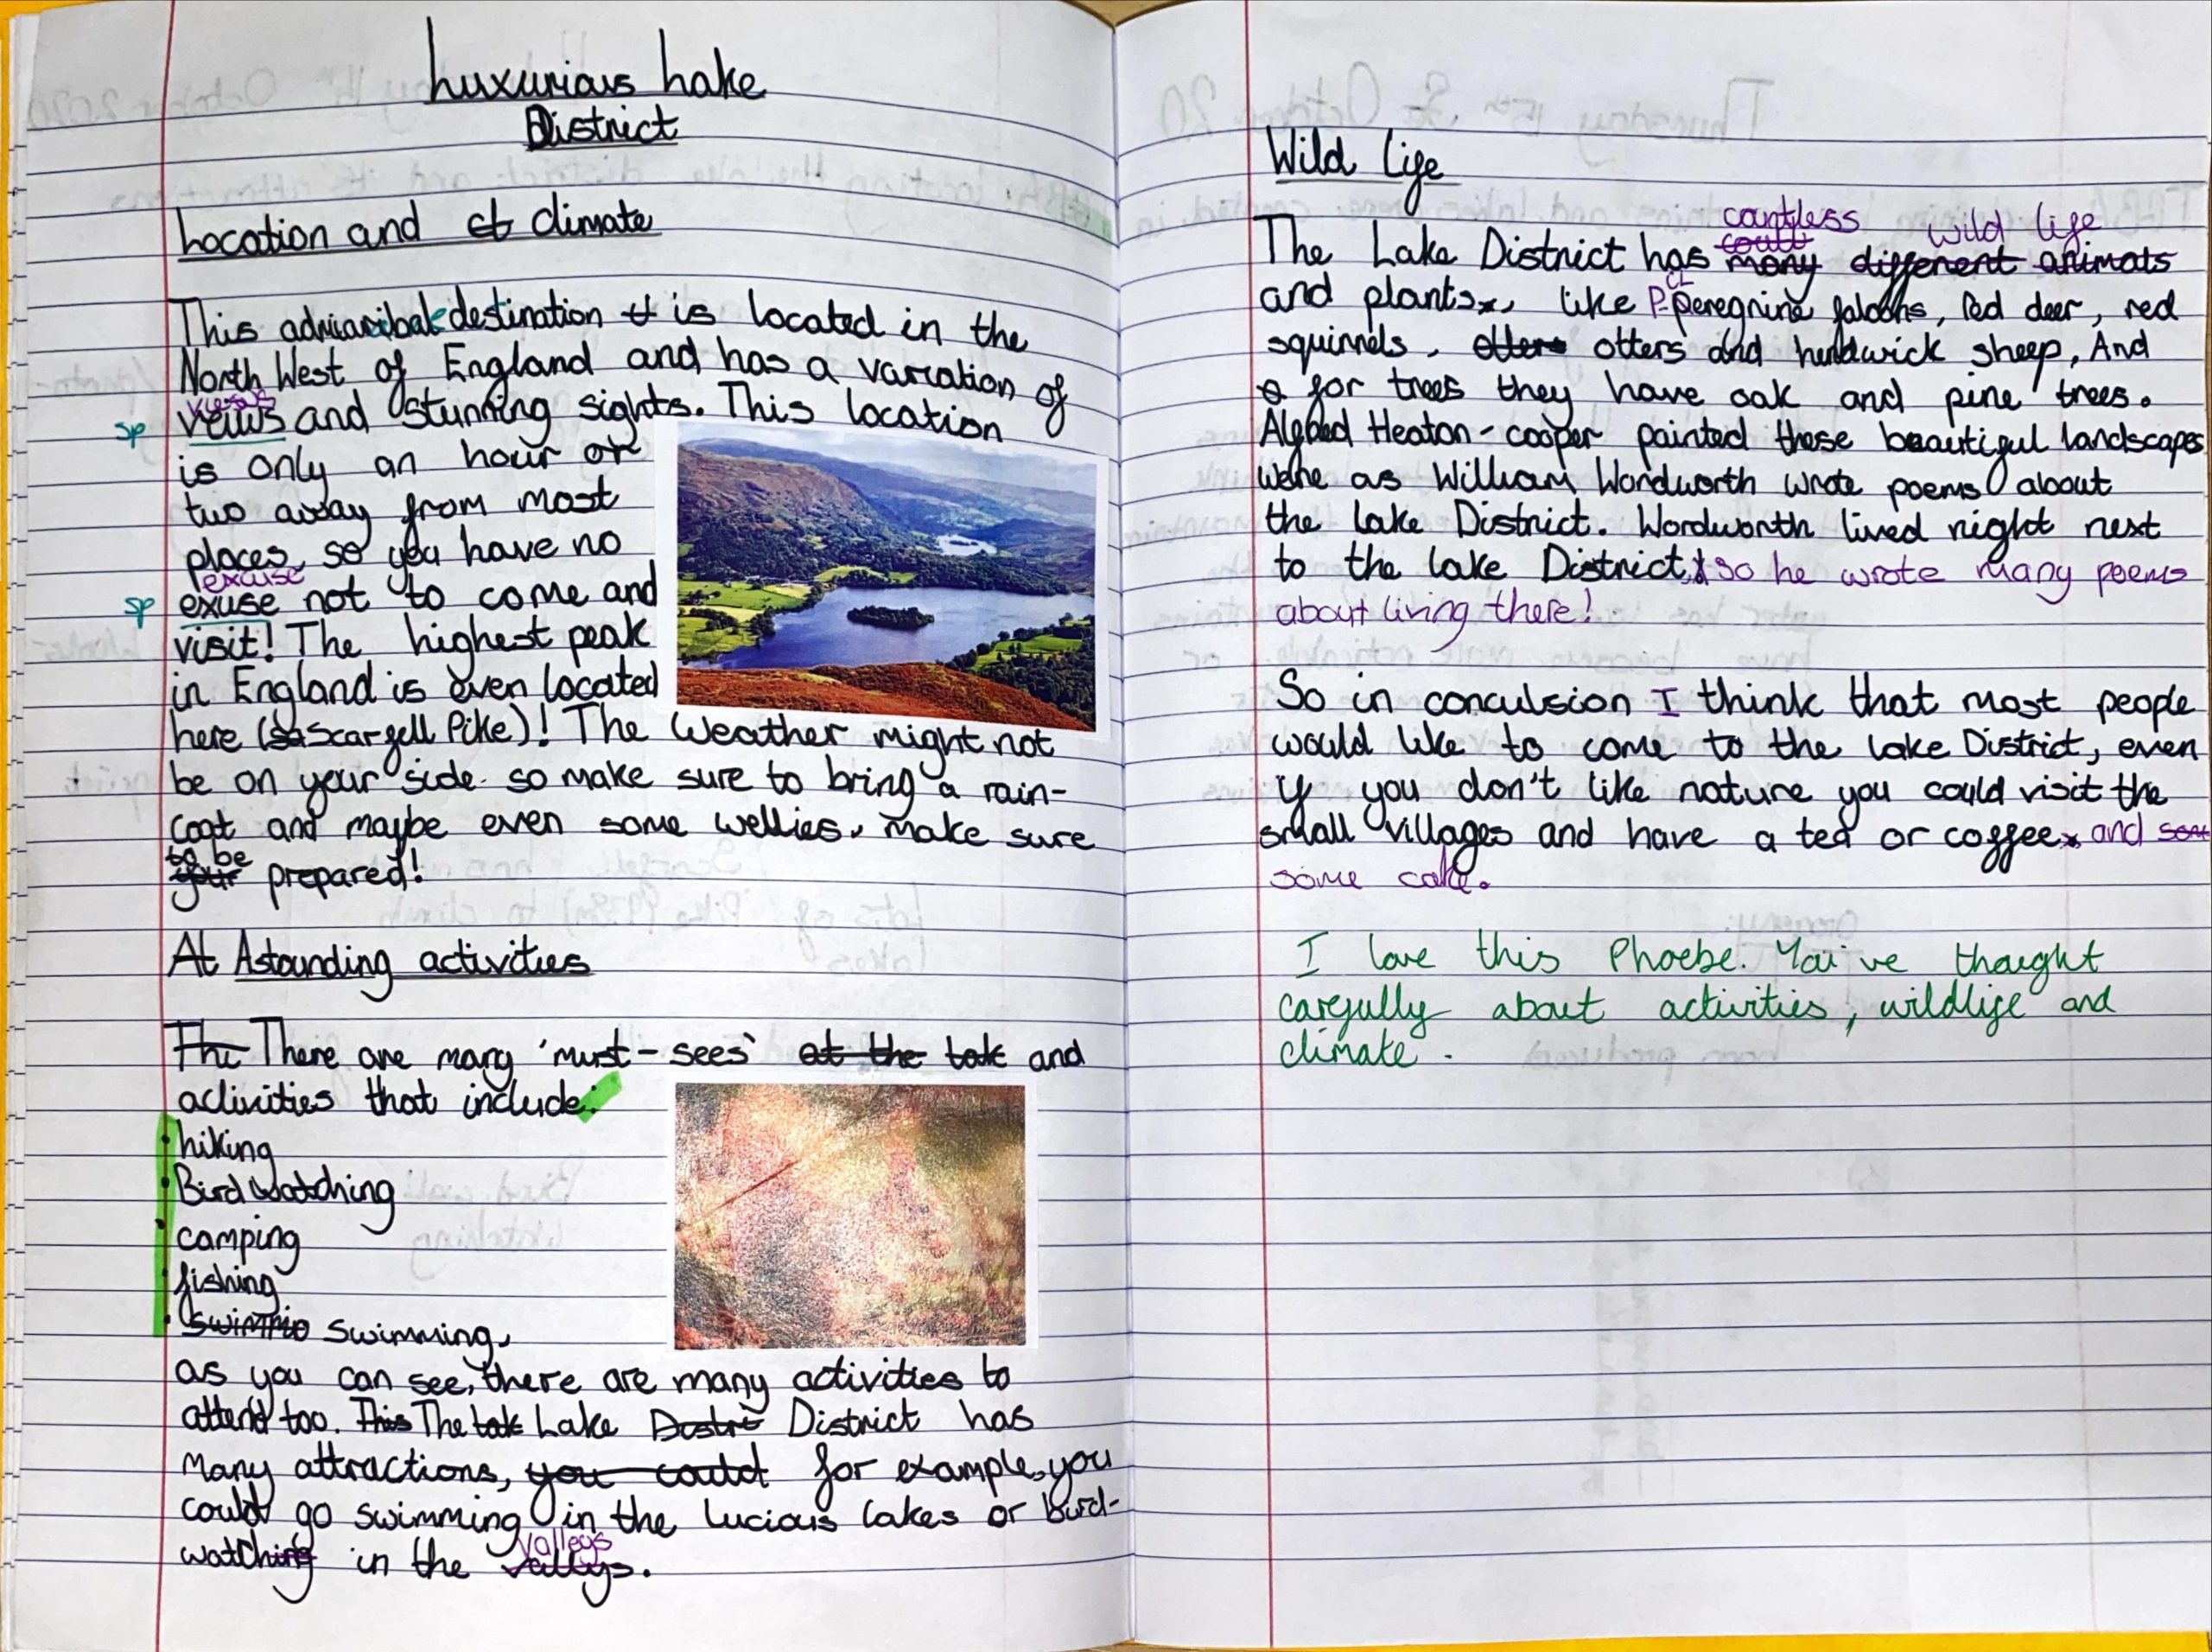 Luxurious Lake
District
Location and climate
This destination is located in the
North West of England and has a variation of
views
sp veiws and stunning sights. This location
is only an hour or
two away from most
places, so you have no
excuse
sp exuse not to come and
visit! The highest peak
in England is even located
here (Scarfell Pike)! The Weather might not
be on your side so make sure to bring a rain-
coat and maybe even some wellies, make sure
to be
your prepared!
At Astounding activities
The There are many 'must-sees' at the lak and
activities that include:
• hiking
• Bird watching
• camping
• fishing
• swimmin swimming,
as you can see, there are many activities to
attend too. This The lak Lake Distri District has
many attractions, you could for example, you
could go swimming in the lucious lakes or bird-
valleys
watching in the vallys.
Wild Life
countless wild life
The Lake District has many different animals
and plants, like Peregrine falcons, Red deer, red
squirrels, otters otters and herdwick sheep, And
for trees they have oak and pine trees.
Heaton-cooper painted these beautiful landscapes
were as William Wordworth wrote poems about
the Lake District. Wordworth lived right next
to the lake District, so he wrote many poems
about living there!
So in conculsion I think that most people
would like to come to the lake District, even
if you don't like nature you could visit the
small villages and have a tea or coffee and som
some cake.
I love this Phoebe. You've thought
carefully about activities, wildlife and
climate.